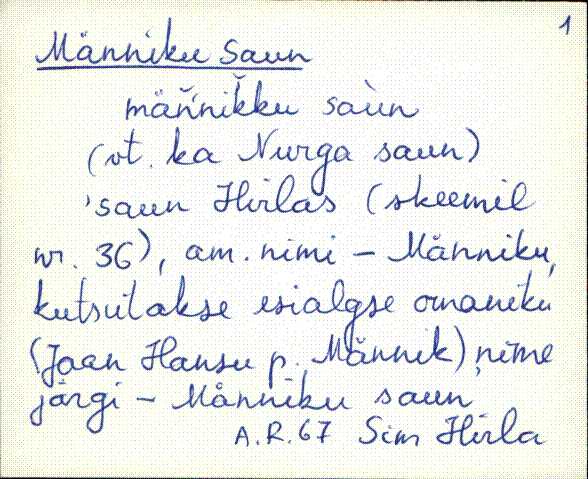 1
Männiku saun
män̆nik̆ku saùn
(vt. ka Nurga saun)
'saun Hirlas (skeemil
nr. 36), am. nimi – Männiku,
kutsutakse esialgse omaniku
(Jaan Hansu p. Männik) nime
järgi – Männiku saun
A.R. 67 Sim Hirla